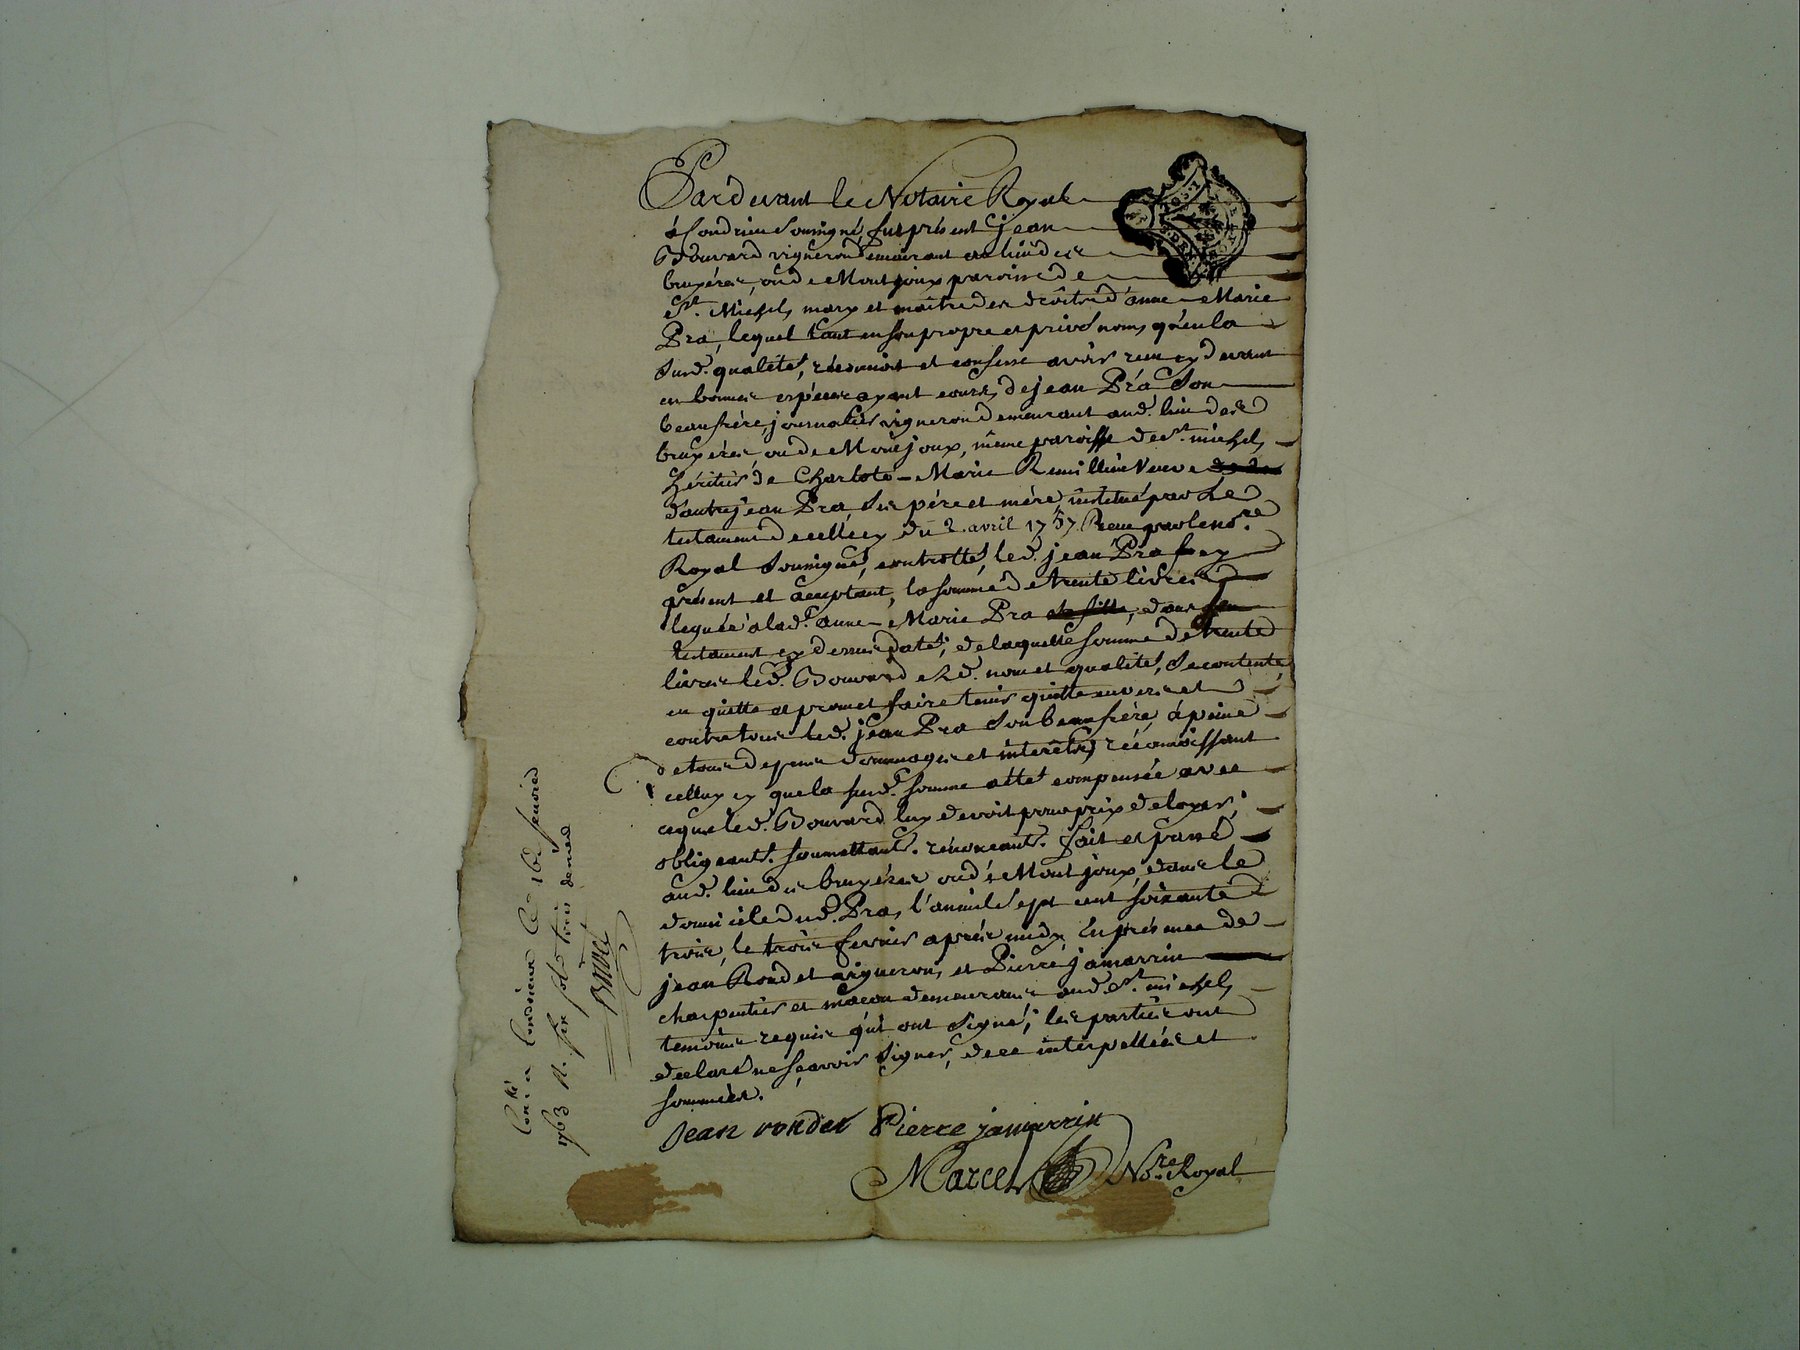 Pardevant le Notaire Royal
à Condrieu soussigné, fut présent jean
Bouvard vigneron demeurant au lieu des
bruyéres, ou de Montjoux paroisse de
St. Michel, mary et maître des droits d'anne Marie
Pra, lequel tant en son propre et privé nom, qu'en la
susd. qualité, réconnoit et confesse avoir reçu cy devant
en bonnes espéces ayant cours, de jean Pra son
beaufrère, journalier vigneron demeurant aud. lieu des
bruyéres ou de Montjoux, même paroisse de St. michel,
héritier de Charlote-Marie Remillieu Veuve
d'autre jean Pra, ses pére et mére, institué par le
testament d'icelle cy du 2 avril 1757 Receu par le nore.
Royal soussigné, controllé, led. jean Pra icy
présent et acceptant, la somme de trente livres
leguée à lad. anne Marie Pra sa fille, dans son
testament cy dessus daté; de laquelle somme de trente
livres led. Bouvard esd. nom et qualité, se contente,
en quitte et promet faire tenir quitte envers et
contre tous led. jean Pra son beaufrére, à peine
de tous depens dommages et interêts, réconnoissant
celluy cy que la susd. somme a été compensée avec
ce que led. Bouvard luy devoit pour prix de loyer;
obligeants. soumettants. rénonceants. fait et passé
aud. lieu des bruyéres ou de Montjoux, dans le
domicile dud. Pra, l'an mil sept cent soixante
trois, le trois fevrier aprés midy, En présence de
jean Rondet vigneron, et Pierre jamarrin
charpentier et maçon demeurants aud. St. michel,
temoins requis qui ont signé; les parties ont
declaré ne sçavoir signer, de ce interpellées et
sommées.
Jean rondet Pierre jamarrin
Marcel Nore. Royal
Conlé a Condrieux le 16e fevrier
1763 R. six sols trois deniers